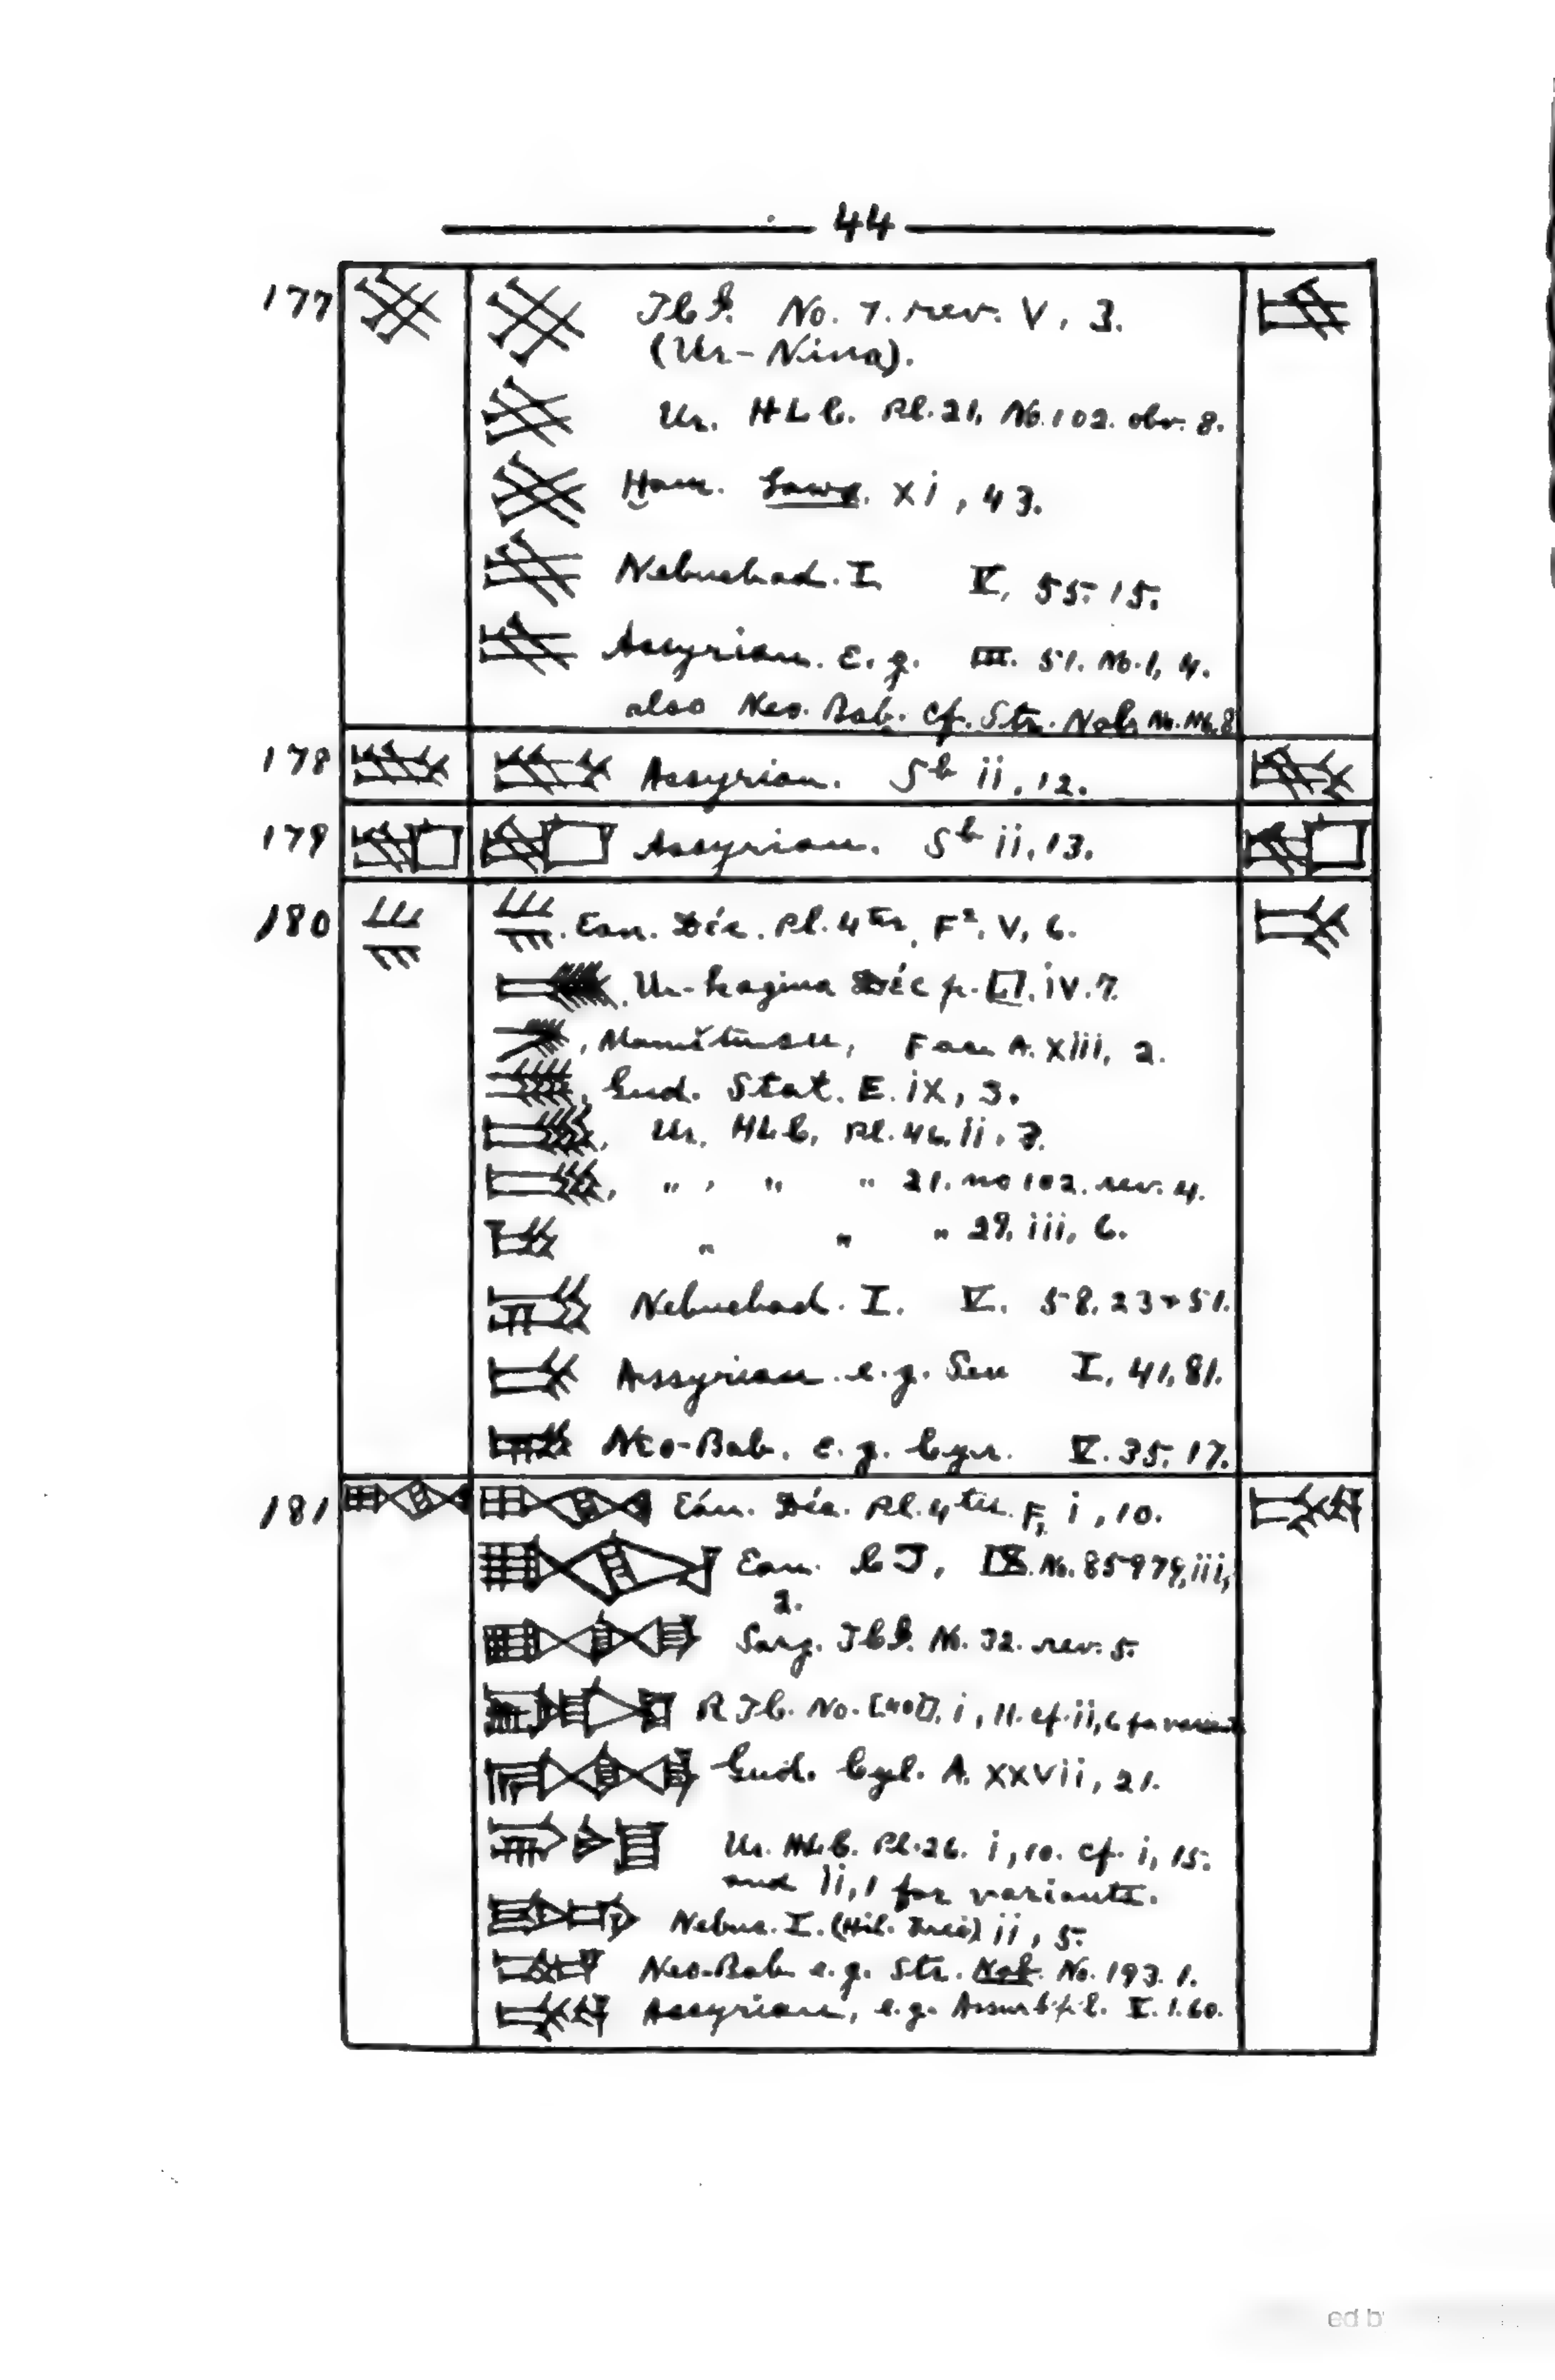 44
177 No. 7. rev. V, 3.
(Ur-Nina).
Ur. HLC. Pl. 21, No. 102. obv. 8.
Ḫam. Laws. xi, 43.
Nebuchad. I V, 55. 15.
Assyrian. E.g. III. 51. No. 1, 4.
also Neo. Bab. cf. Str. Nab.
178 Assyrian. Sb ii, 12.
179 Assyrian. Sb ii, 13.
180 Ean. Déc. Pl. 4ter, F2. V, 6.
Ur-Kagina Déc p. iv. 7.
Maništusu, Face A. xiii, 2.
Gud. Stat. E. ix, 3.
Ur. HLC, Pl. 46. ii, 7.
" , " " 21. no 102. rev. 4.
" " " 29. iii, 6.
Nebuchad. I. V. 58. 23 + 51.
Assyrian e.g. Sen I, 41, 81.
Neo-Bab. e.g. Cyr. V. 35. 17.
181 Ean. Déc. Pl. 4ter. F, i, 10.
Ean. CT, IX. No. 85979, iii,
2.
Sarg. No. 32. rev. 5.
RTC. No. i, 11. cf. ii, 6 for variant
Gud. Cyl. A. xxvii, 21.
Ur. HLC. Pl. 26. i, 10. cf. i, 15.
and ii, 1 for variants.
Nebuc. I. ii, 5.
Neo-Bab e.g. Str. No. 193. 1.
Assyrian, e.g. V. 1. 60.
ed b